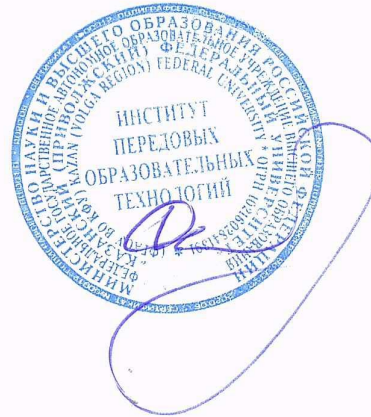 МИНИСТЕРСТВО НАУКИ И ВЫСШЕГО ОБРАЗОВАНИЯ РОССИЙСКОЙ ФЕДЕРАЦИИ
ФЕДЕРАЛЬНОЕ ГОСУДАРСТВЕННОЕ АВТОНОМНОЕ ОБРАЗОВАТЕЛЬНОЕ УЧРЕЖДЕНИЕ ВЫСШЕГО ОБРАЗОВАНИЯ
"КАЗАНСКИЙ (ПРИВОЛЖСКИЙ) ФЕДЕРАЛЬНЫЙ УНИВЕРСИТЕТ"
KAZAN (VOLGA REGION) FEDERAL UNIVERSITY * ОГРН
ИНСТИТУТ
ПЕРЕДОВЫХ
ОБРАЗОВАТЕЛЬНЫХ
ТЕХНОЛОГИЙ